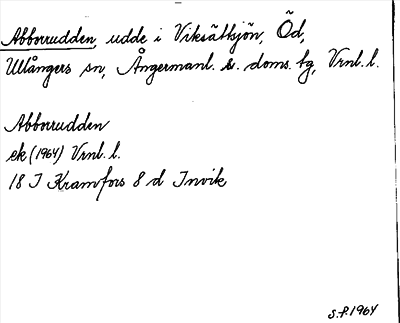 Abborrudden, udde i Viksättsjön, Öd,
Ullångers sn, Ångermanl. s. doms. tg, Vrnl. l.
Abborrudden
ek (1964) Vrnl. l.
18 I Kramfors 8 d Invik
S.F. 1964